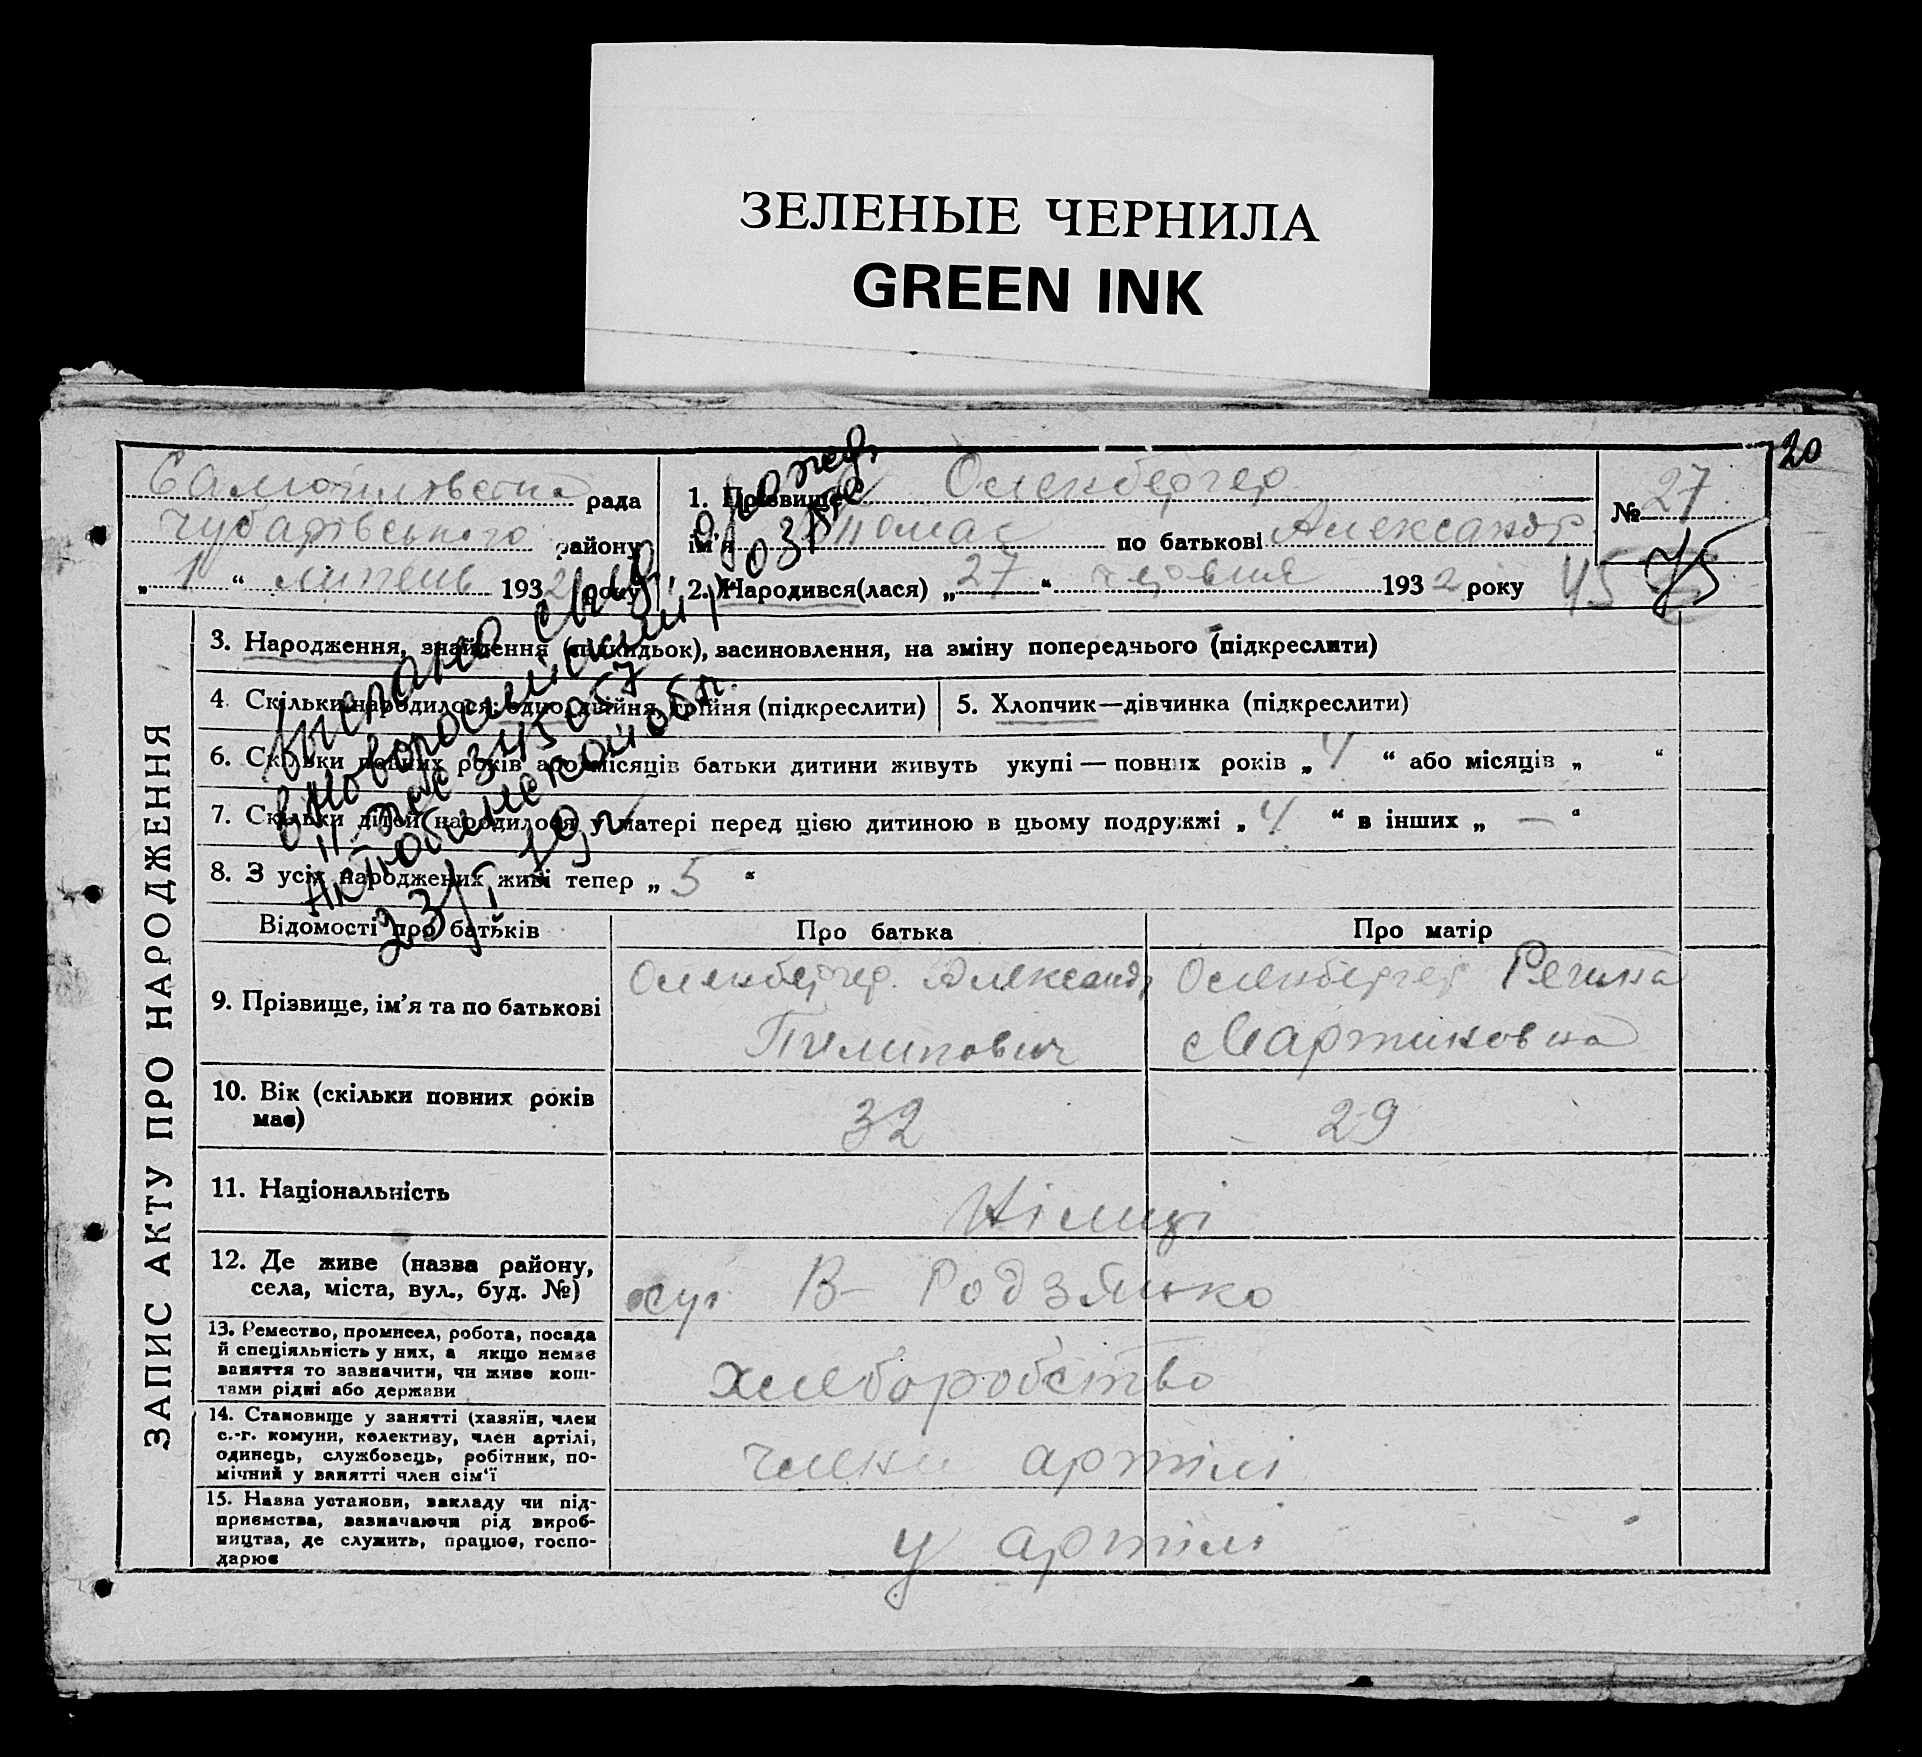 ЗЕЛЕНЫЕ ЧЕРНИЛА
GREEN INK
20
рада
Чубарівського району
„ 1 “ липень 1932 року
1. Прізвище Оленбергер
ім'я Томас по батькові Александр
2. Народився(лася) „ 27 “ червня 1932 року
№ 27
45 75
ЗАПИС АКТУ ПРО НАРОДЖЕННЯ
3. Народження, знайдення (підкидьок), засиновлення, на зміну попереднього (підкреслити)
4. Скільки народилося: одно, двійня, трійня (підкреслити)
5. Хлопчик—дівчинка (підкреслити)
6. Скільки повних років або місяців батьки дитини живуть укупі — повних років „ 4 “ або місяців „ “
7. Скільки дітей народилося у матері перед цією дитиною в цьому подружжі „ 4 “ в інших „ — “
8. З усіх народжених живі тепер „ 5 “
выслано
Новороссийский
Актюбинской обл.
Відомості про батьків
Про батька
Про матір
9. Прізвище, ім'я та по батькові
Оленбергер Александр
Пилипович
Оленбергер Регина
Мартиновна
10. Вік (скільки повних років
має)
32
29
11. Національність
Німці
12. Де живе (назва району,
села, міста, вул., буд. №)
хут. В- Родзянко
13. Ремество, промисел, робота, посада
й спеціяльність у них, а якщо немає
заняття то зазначити, чи живе кош-
тами рідні або держави
хлеборобство
14. Становище у занятті (хазяїн, член
с.-г. комуни, колективу, член артілі,
одинець, службовець, робітник, по-
мічний у занятті член сім'ї
члени артілі
15. Назва установи, закладу чи під-
приємства, зазначаючи рід вироб-
ництва, де служить, працює, госпо-
дарює
у артілі